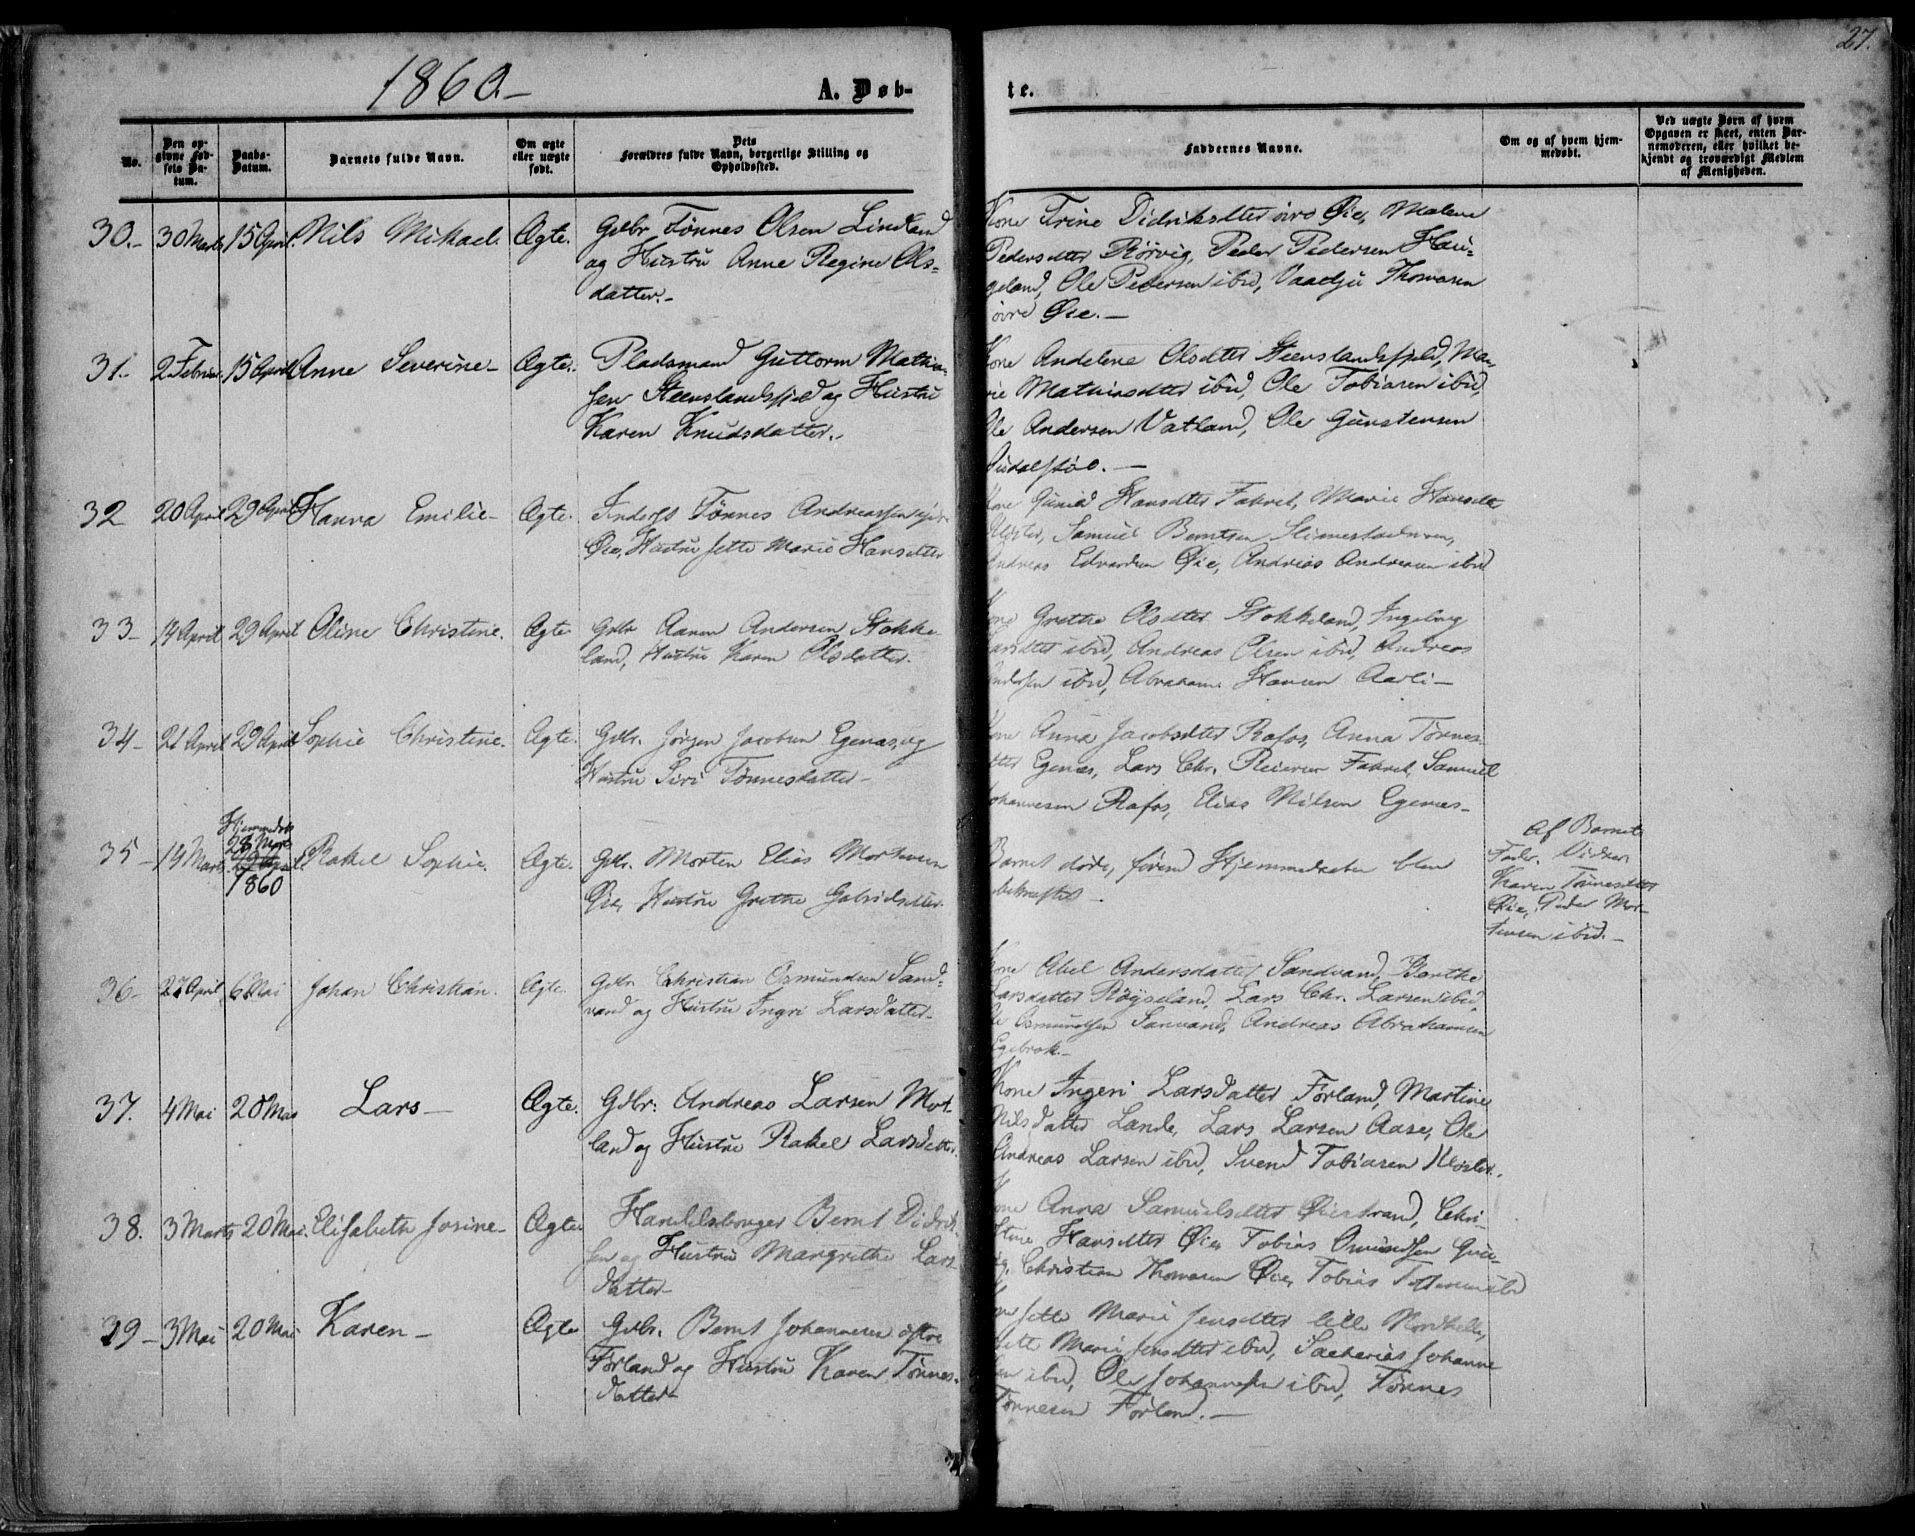 1860.-
A. Døb-
te.
27.
No.
Den op-
givne Fød-
sels Da-
tum.
Daabs-
Datum.
Barnets fulde Navn.
Om ægte
eller uægte
født.
Dets
Forældres fulde Navn, borgerlige Stilling og
Opholdssted.
Faddernes Navne.
Om og af hvem hjem-
medøbt.
Ved uægte Børn af hvem
Opgaven er skeet, enten Bar-
nemoderen, eller hvilket be-
kjendt og troværdigt Medlem
af Menigheden.
30.- 30 Marts 15 April Nils Mikael. Ægte.
Gdbr. Tønnes Olsen Lindland
og Hustru Anne Regine Ols-
datter.-
Kone Trine Didriksdtter øvre Øie, Malene
Pedersdtter Rørvig, Peder Pedersen Hau-
geland, Ole Pedersen ibid, Vaadju Thomasen
øvre Øie.-
31.- 2 Februar 15 April Anne Severine- Ægte.
Pladsmand Guttorm Mathi-
sen Steenslandsfjeld og Hustru
Karen Knudsdatter.-
Kone Andelene Olsdtter Steenslandsfjeld, Ma-
rie Mathiasdtter ibid, Ole Tobiasen ibid,
Ole Andersen Vatland, Ole Gunstensen
32 20 April 29 April Hanna Emilie- Ægte.
Tønnes Andreassen
Øie, Hustru Jette Marie Hansdtter
Kone Hansdtter Fakvel, Marie Hansdtr
Samuel Berntsen
Andreas Edvardsen Øie, Andreas Andreasen ibid
33- 14 April 29 April Oline Christine. Ægte
Gdbr Aanen Andersen Stokke-
land, Hustru Karen Olsdatter.
Kone Grethe Olsdtter Stokkeland, Ingeborg
ibid, Andreas Olsen ibid, Andreas
Andersen ibid, Abraham Hansen Aarli-
34- 21 April 29 April Sophie Christine. Ægte.
Gdbr. Jørgen Jacobsen Egenæs, og
Hustru Siri Tønnesdatter-
Kone Anna Jacobsdtter Rafos, Anna Tønnes-
dtter Egenæs, Lars Chr. Reiersen Fakvel, Samuel
Johannesen Rafos, Elias Nilsen Egenæs-
Hjemmedøbt
28 Marts
1860
35- 14 Marts Rakel Sophie. Ægte.
Gdbr. Morten Elias Mortensen
Øie, Hustru Grethe Gabrielsdtter
Barnet døde, førend Hjemmedaaben blev
bekræftet-
Af Barnets
Fader. Vidner
Karen Tønnesdtter
Øie, Peder Mor-
tensen ibid.-
36- 27 April 6 Mai Johan Christian. Ægte.
Gdbr Christian Osmundsen Sand-
vand og Hustru Ingri Larsdatter-
Kone Abel Andersdatter Sandvand, Berthe
Larsdatter Røyseland, Lars Chr. Larsen ibid,
Ole Osmundsen Sanvand, Andreas Abrahamsen
Egebrok-
37. 4 Mai 20 Mai Lars- Ægte.
Gdbr. Andreas Larsen Mot-
land og Hustru Rakel Larsdatter.
Kone Ingeri Larsdatter Førland, Martine
Nilsdatter Lande, Lars Larsen Aase, Ole
Andreas Larsen ibid, Svend Tobiasen Kloster.
38. 3 Marts 20 Mai. Elisabeth Josine- Ægte
Handelsborger Bernt Didrik-
sen og Hustru Margrethe Lars-
datter-
Kone Anna Samuelsdtter Øiestrand, Chri-
stine Hansdtter Øie, Tobias Omundsen
Christian Thomasen Øie, Tobias
39- 3 Mai 20 Mai Karen- Ægte
Gdbr. Bernt Johannesen østre
Førland og Hustru Karen Tønnes-
datter-
Kone Jette Marie Jensdtter lille
Jette Marie Jensdtter ibid, Sacharias Johanne-
sen ibid, Ole Johannesen ibid, Tønnes
Tønnesen Førland.-